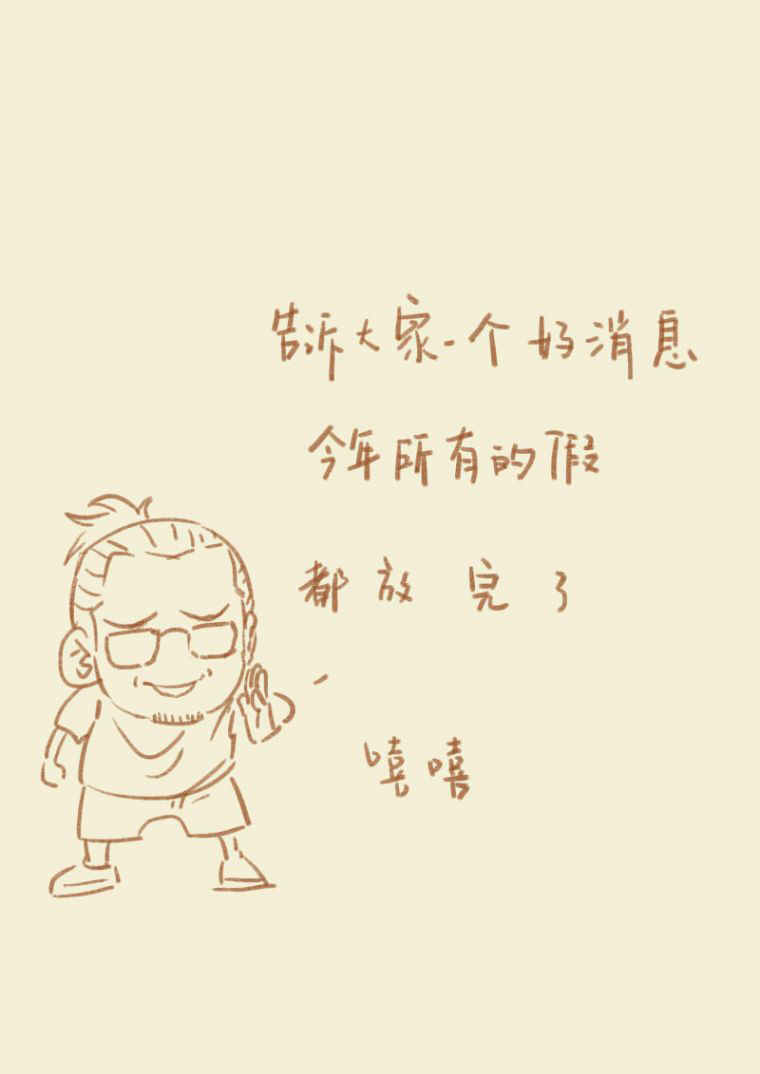 告诉大家一个好消息
今年所有的假
都放完了
嘻嘻